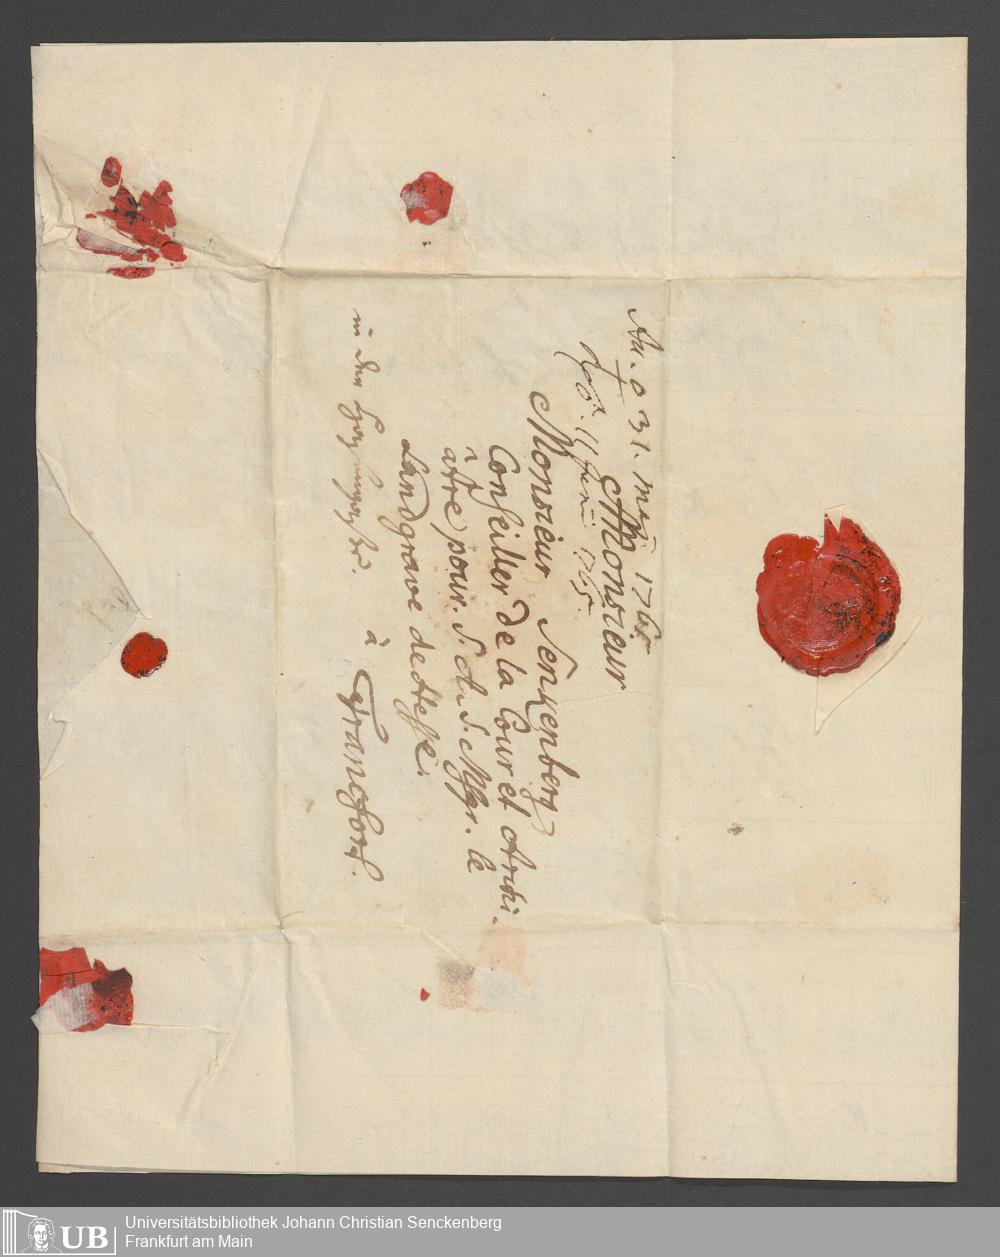 An. o 31. Mai 1765
rsp. 11 Junii 1765.
Monsieur
Monsieur Senkenberg
Conseiller de la Cour et Archi-
âtre pour. S. A. S. Msgr. le
Landgrave de Hesse.
à Francfort.
in der
Universitätsbibliothek Johann Christian Senckenberg
Frankfurt am Main
UB